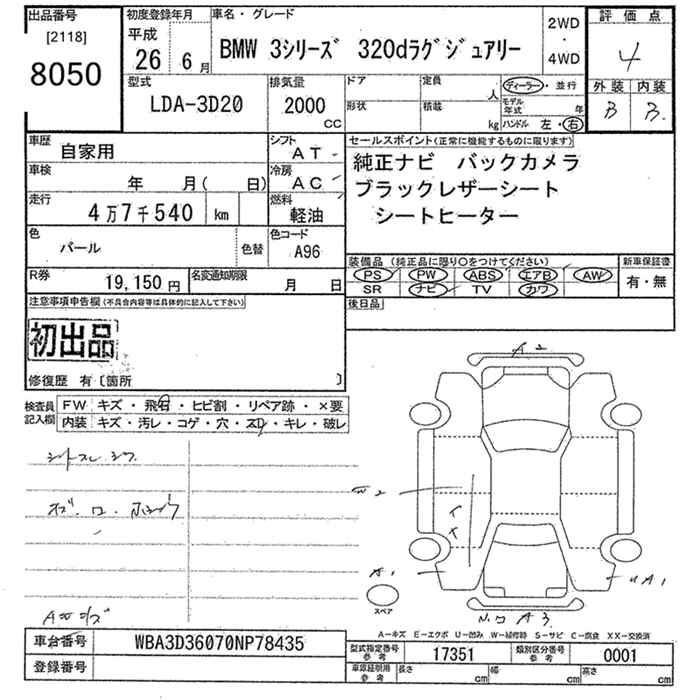 出品番号
[2118]
8050
初度登録年月
平成
26 6月
車名・グレード
BMW 3シリーズ 320dラグジュアリー
2WD
・
4WD
評価点
4
外装 内装
B B
型式
LDA-3D20
排気量
2000
CC
ドア
定員
人
形状
積載
kg
ディーラー・並行
モデル年式 年
ハンドル 左・右
車歴
自家用
シフト
AT
車検
年 月( 日)
冷房
AC
走行
4万7千540 km
燃料
軽油
色
パール
色替
色コード
A96
R券
19,150円
名変通知期限
月 日
セールスポイント(正常に機能するものに限ります)
純正ナビ バックカメラ
ブラックレザーシート
シートヒーター
装備品 (純正品に限り○をつけてください)
PS PW ABS エアB AW
SR ナビ TV カワ
新車保証書
有・無
後日品
注意事項申告欄(不具合内容等は具体的に記入して下さい)
初出品
修復歴 有〔箇所 〕
検査員
記入欄
FW キズ・飛石・ヒビ割・リペア跡・×要
内装 キズ・汚レ・コゲ・穴・スレ・キレ・破レ
A2
A1
A1
A3
スペア
A―キズ E―エクボ U―凹み W―補修跡 S―サビ C―腐食 XX―交換済
車台番号
WBA3D36070NP78435
登録番号
型式指定番号
参考
17351
類別区分番号
参考
0001
車庫証明用
参考
長さ cm
幅 cm
高さ cm